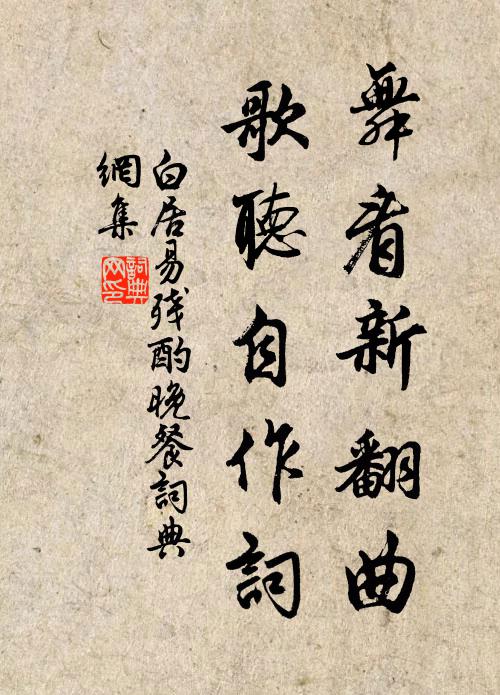 舞看新翻曲
歌聽自作詞
白居易残酌晚餐詞典
網集
詞典網印